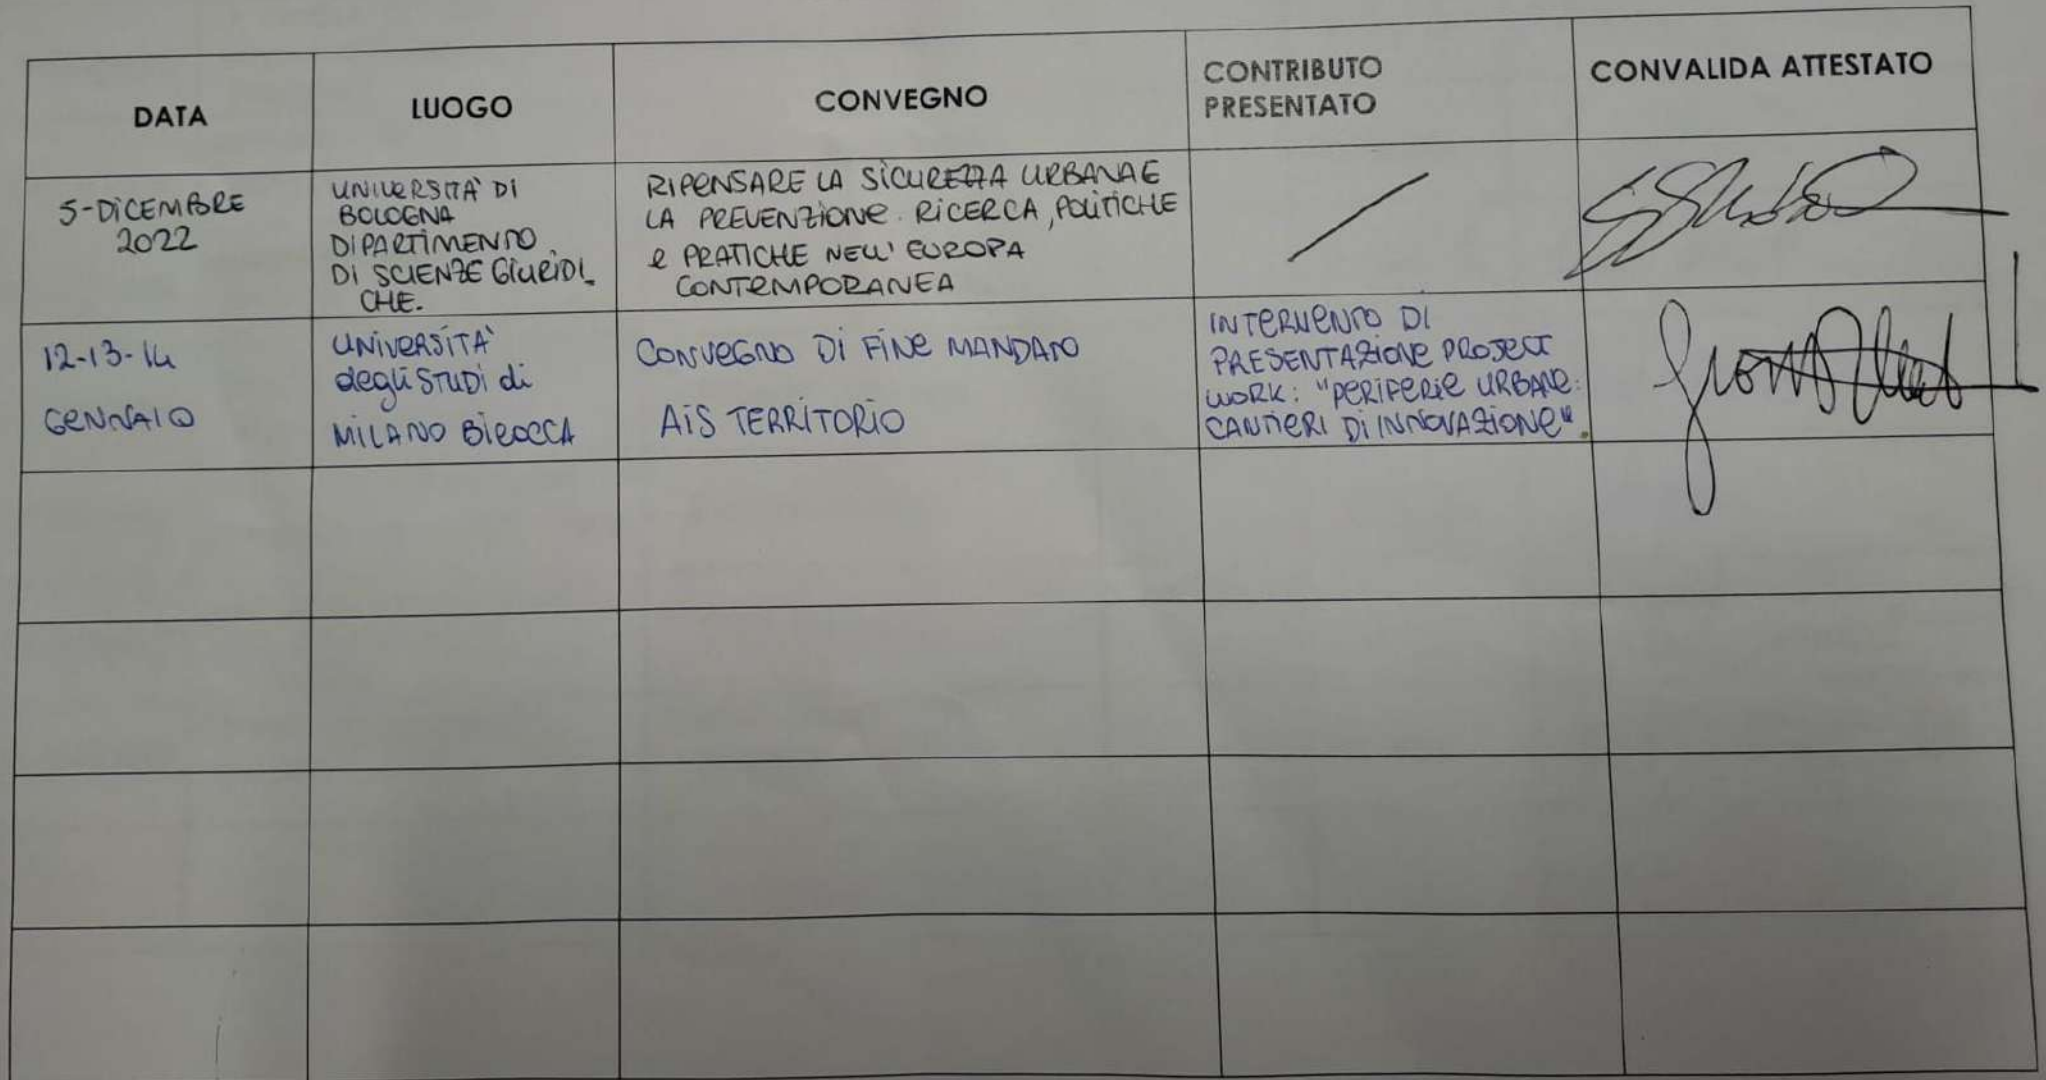 DATA
LUOGO
CONVEGNO
CONTRIBUTO
PRESENTATO
CONVALIDA ATTESTATO
5-DICEMBRE
2022
UNIVERSITA' DI
BOLOGNA
DIPARTIMENTO
DI SCIENZE GIURIDI_
CHE.
RIPENSARE LA SICUREZZA URBANA E
LA PREVENZIONE. RICERCA, POLITICHE
e PRATICHE NELL' EUROPA
CONTEMPORANEA
12-13-14
GENNAIO
UNIVERSITA'
degli STUDI di
MILANO BICOCCA
CONVEGNO DI FINE MANDATO
AIS TERRITORIO
INTERVENTO DI
PRESENTAZIONE PROJECT
WORK: "PERIFERIE URBANE:
CANTIERI DI INNOVAZIONE".